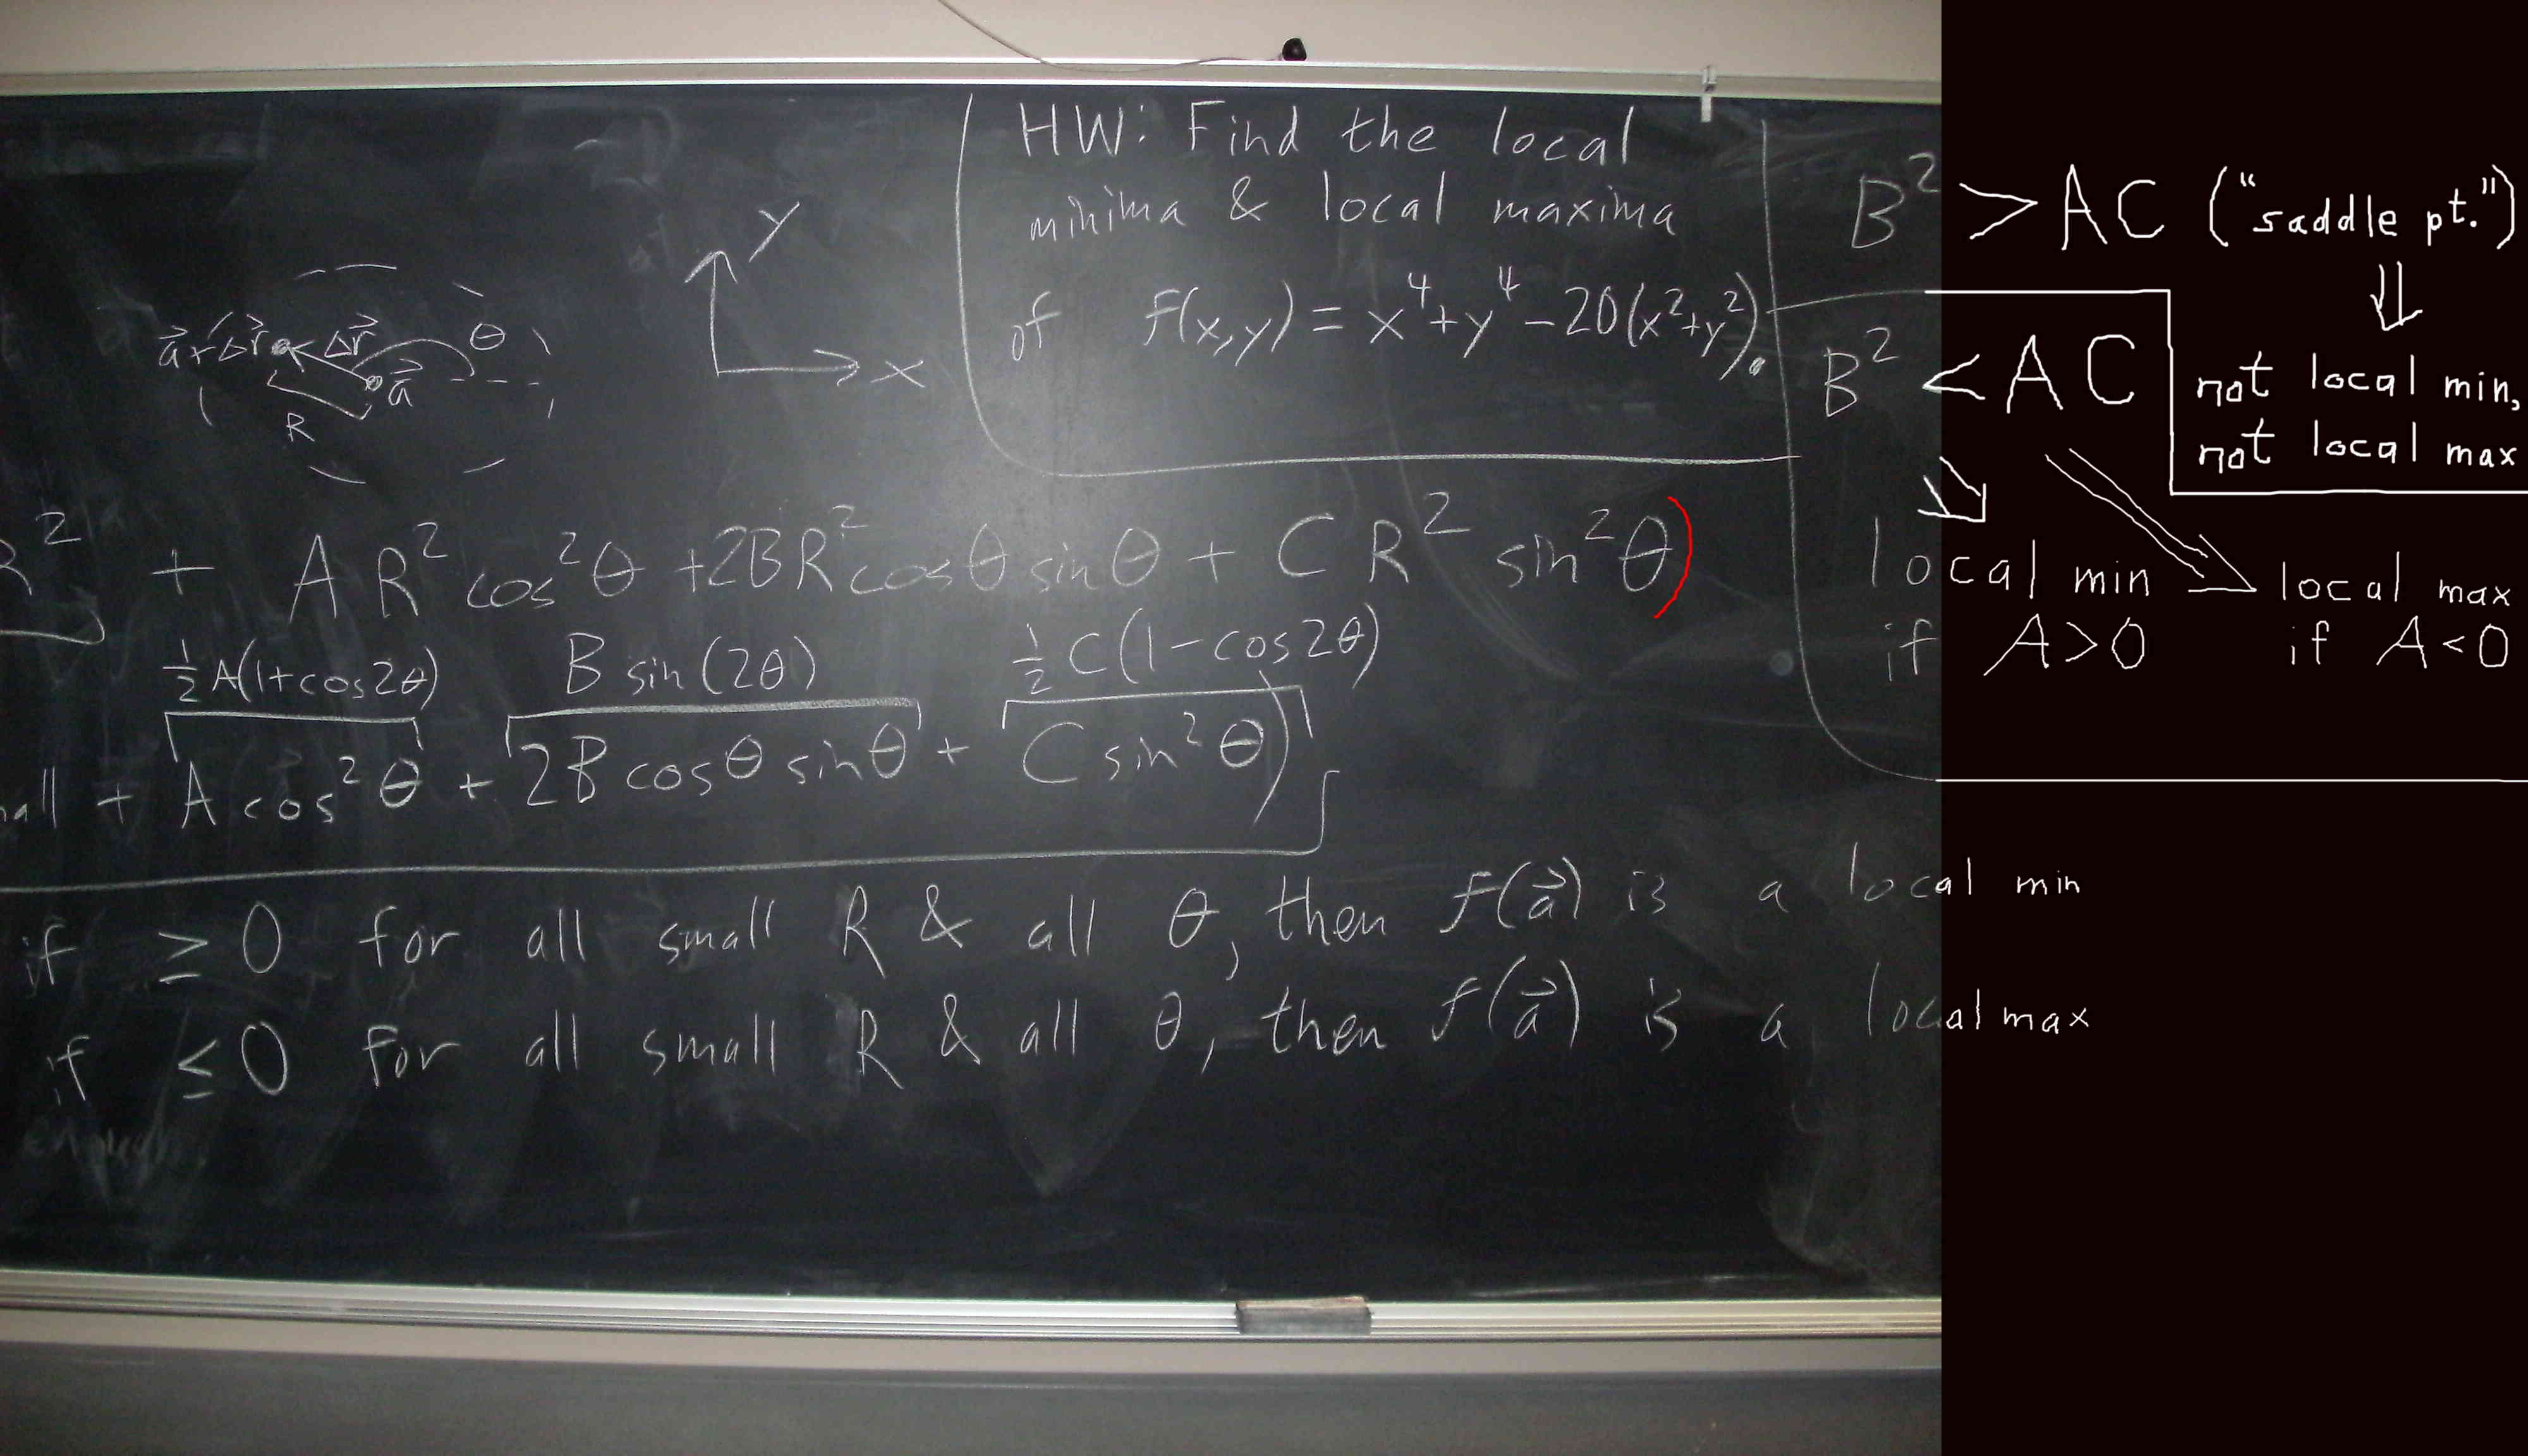 HW: Find the local
minima & local maxima
of f(x,y) = x⁴+y⁴-20(x²+y²).
B² > AC ("saddle pt.")
⇓
not local min,
not local max
B² < AC
local min
if A>0
local max
if A<0
y
x
a⃗+Δr⃗
Δr⃗
θ
a⃗
R
R² + AR² cos²θ +2BR² cosθ sinθ + C R² sin²θ)
½A(1+cos2θ) B sin(2θ) ½C(1-cos2θ)
+ A cos²θ + 2B cosθ sinθ + C sin²θ)
if ≥0 for all small R & all θ, then f(a⃗) is a local min
if ≤0 for all small R & all θ, then f(a⃗) is a local max
enough.